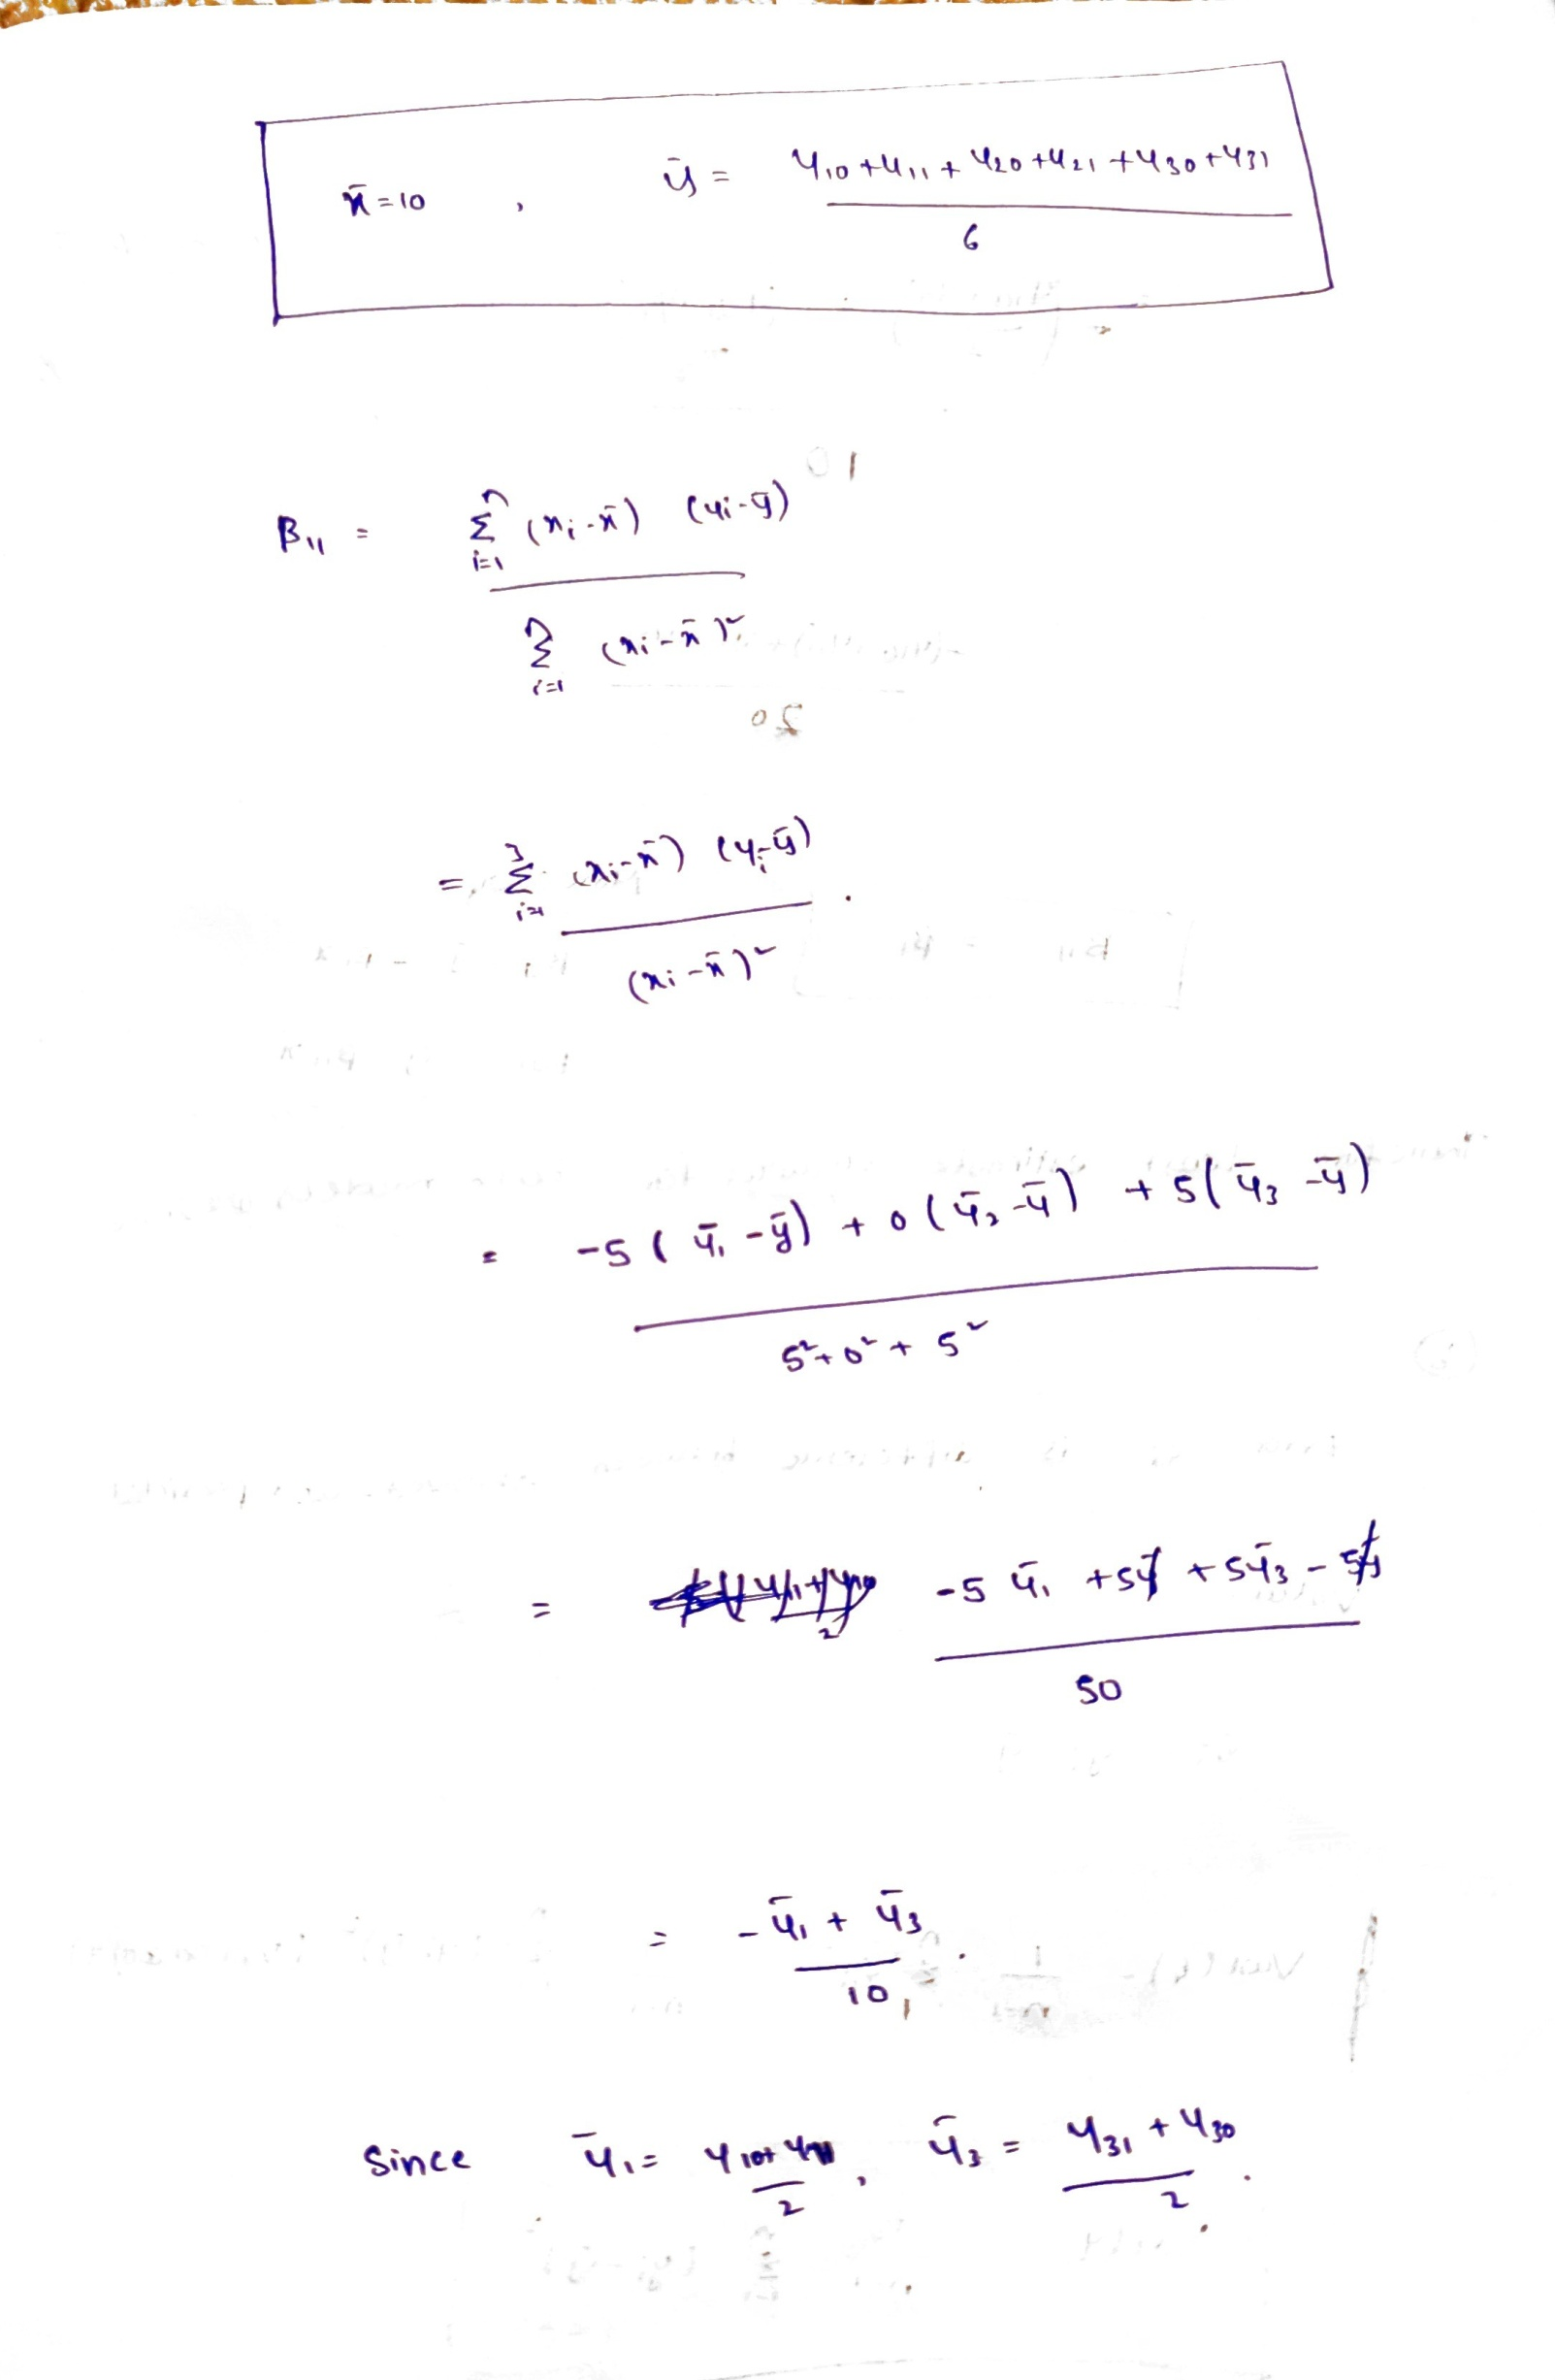 x̄ = 10 , ȳ = (y10 + y11 + y20 + y21 + y30 + y31) / 6
B11 = Σ_{i=1}^{n} (xi - x̄) (yi - ȳ) / Σ_{i=1}^{n} (xi - x̄)²
= Σ_{i=1}^{3} (xi - x̄) (yi - ȳ) / (xi - x̄)² .
= -5 ( ȳ1 - ȳ) + 0 ( ȳ2 - ȳ) + 5( ȳ3 - ȳ) / 5² + 0² + 5²
= -5 ȳ1 + 5ȳ + 5ȳ3 - 5ȳ / 50
= - ȳ1 + ȳ3 / 10 .
Since ȳ1 = y10 + y11 / 2 , ȳ3 = y31 + y30 / 2 .